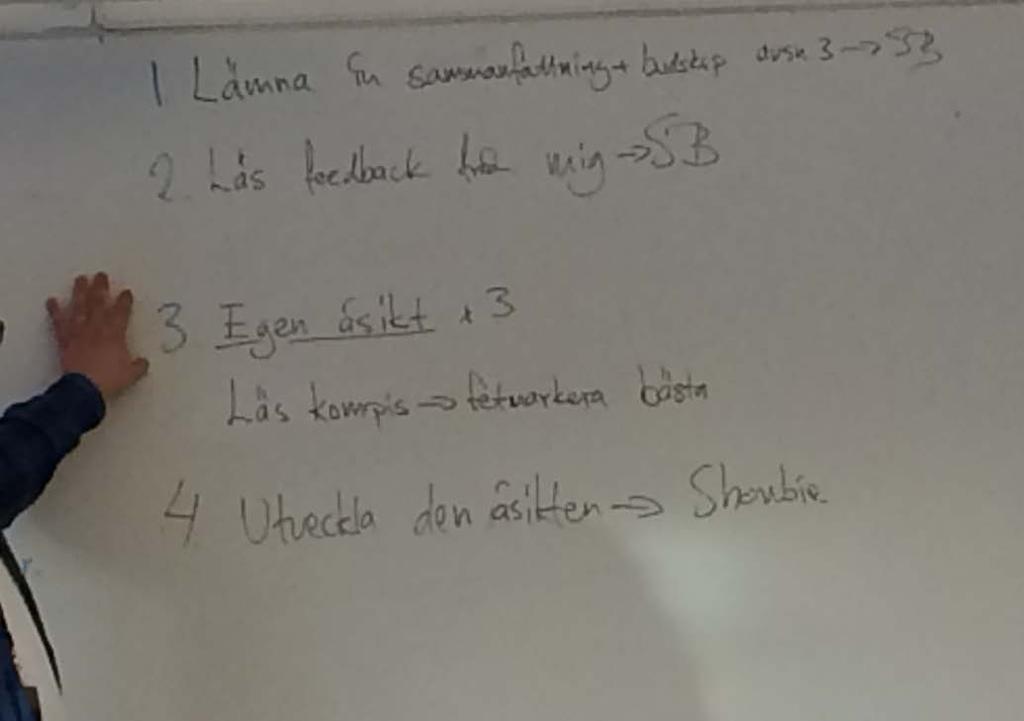 1 Lämna in sammanfattning + budskap avsn 3 → SB
2. Läs feedback från mig → SB
3 Egen åsikt x 3
Läs kompis → fetmarkera bästa
4 Utveckla den åsikten → Showbie